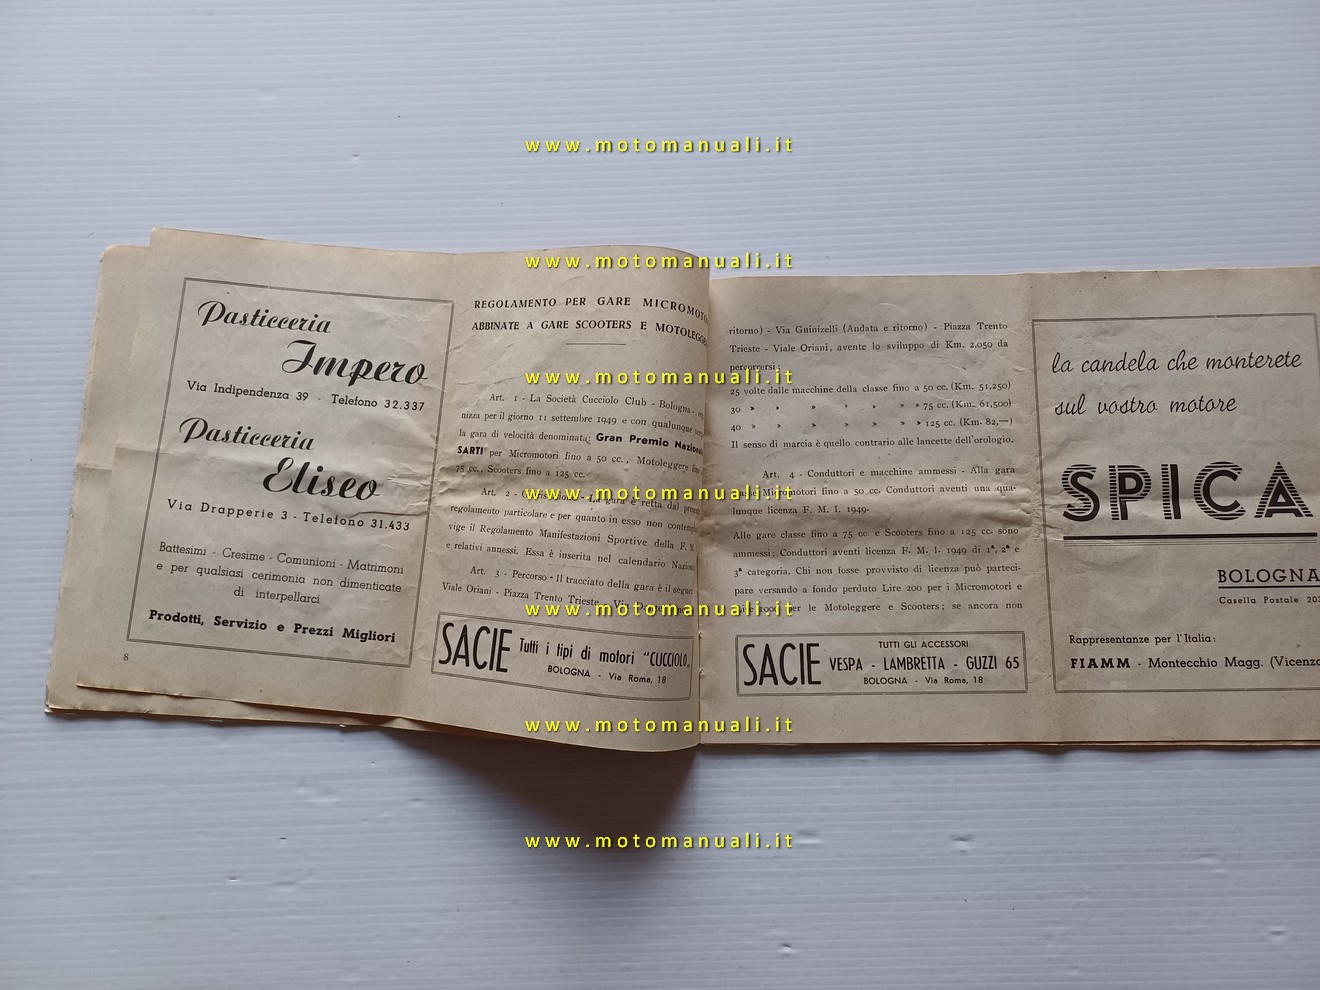 www.motomanuali.it
www.motomanuali.it
www.motomanuali.it
www.motomanuali.it
www.motomanuali.it
www.motomanuali.it
www.motomanuali.it
Pasticceria
Impero
Via Indipendenza 39 - Telefono 32.337
Pasticceria
Eliseo
Via Drapperie 3 - Telefono 31.433
Battesimi - Cresime - Comunioni - Matrimoni
e per qualsiasi cerimonia non dimenticate
di interpellarci
Prodotti, Servizio e Prezzi Migliori
8
REGOLAMENTO PER GARE MICROMOTO
ABBINATE A GARE SCOOTERS E MOTOLEGGE
Art. 1 - La Società Cucciolo Club - Bologna -
nizza per il giorno 11 settembre 1949 e con qualunque
la gara di velocità denominata: Gran Premio Naziona
SARTI per Micromotori fino a 50 cc., Motoleggere fino
75 cc., Scooters fino a 125 cc.
Art. 2 - La gara è retta dal
regolamento particolare e per quanto in esso non
vige il Regolamento Manifestazioni Sportive della F. M.
e relativi annessi. Essa è inserita nel calendario
Art. 3 - Percorso - Il tracciato della gara è il
Viale Oriani - Piazza Trento Trieste -
SACIE Tutti i tipi di motori "CUCCIOLO„
BOLOGNA - Via Roma, 18
ritorno) - Via Guinizelli (Andata e ritorno) - Piazza Trento
Trieste - Viale Oriani, avente lo sviluppo di Km. 2,050 da
percorrersi:
25 volte dalle macchine della classe fino a 50 cc. (Km. 51,250)
30 » » » » » » 75 cc. (Km. 61,500)
40 » » » » » » 125 cc. (Km. 82,—)
Il senso di marcia è quello contrario alle lancette dell'orologio.
Art. 4 - Conduttori e macchine ammessi - Alla gara
Micromotori fino a 50 cc. Conduttori aventi una qua-
lunque licenza F. M. I. 1949.
Alle gare classe fino a 75 cc. e Scooters fino a 125 cc. sono
ammessi: Conduttori aventi licenza F. M. I. 1949 di 1ª, 2ª e
3ª categoria. Chi non fosse provvisto di licenza può parteci-
pare versando a fondo perduto Lire 200 per i Micromotori e
per le Motoleggere e Scooters; se ancora non
SACIE
TUTTI GLI ACCESSORI
VESPA - LAMBRETTA - GUZZI 65
BOLOGNA - Via Roma, 18
la candela che monterete
sul vostro motore
SPICA
BOLOGNA
Casella Postale
Rappresentanze per l'Italia:
FIAMM - Montecchio Magg. (Vicenza